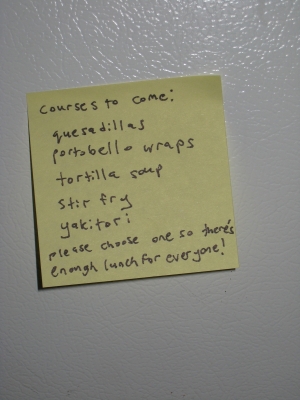 courses to come:
quesadillas
portobello wraps
tortilla soup
stir fry
yakitori
please choose one so there's
enough lunch for everyone!